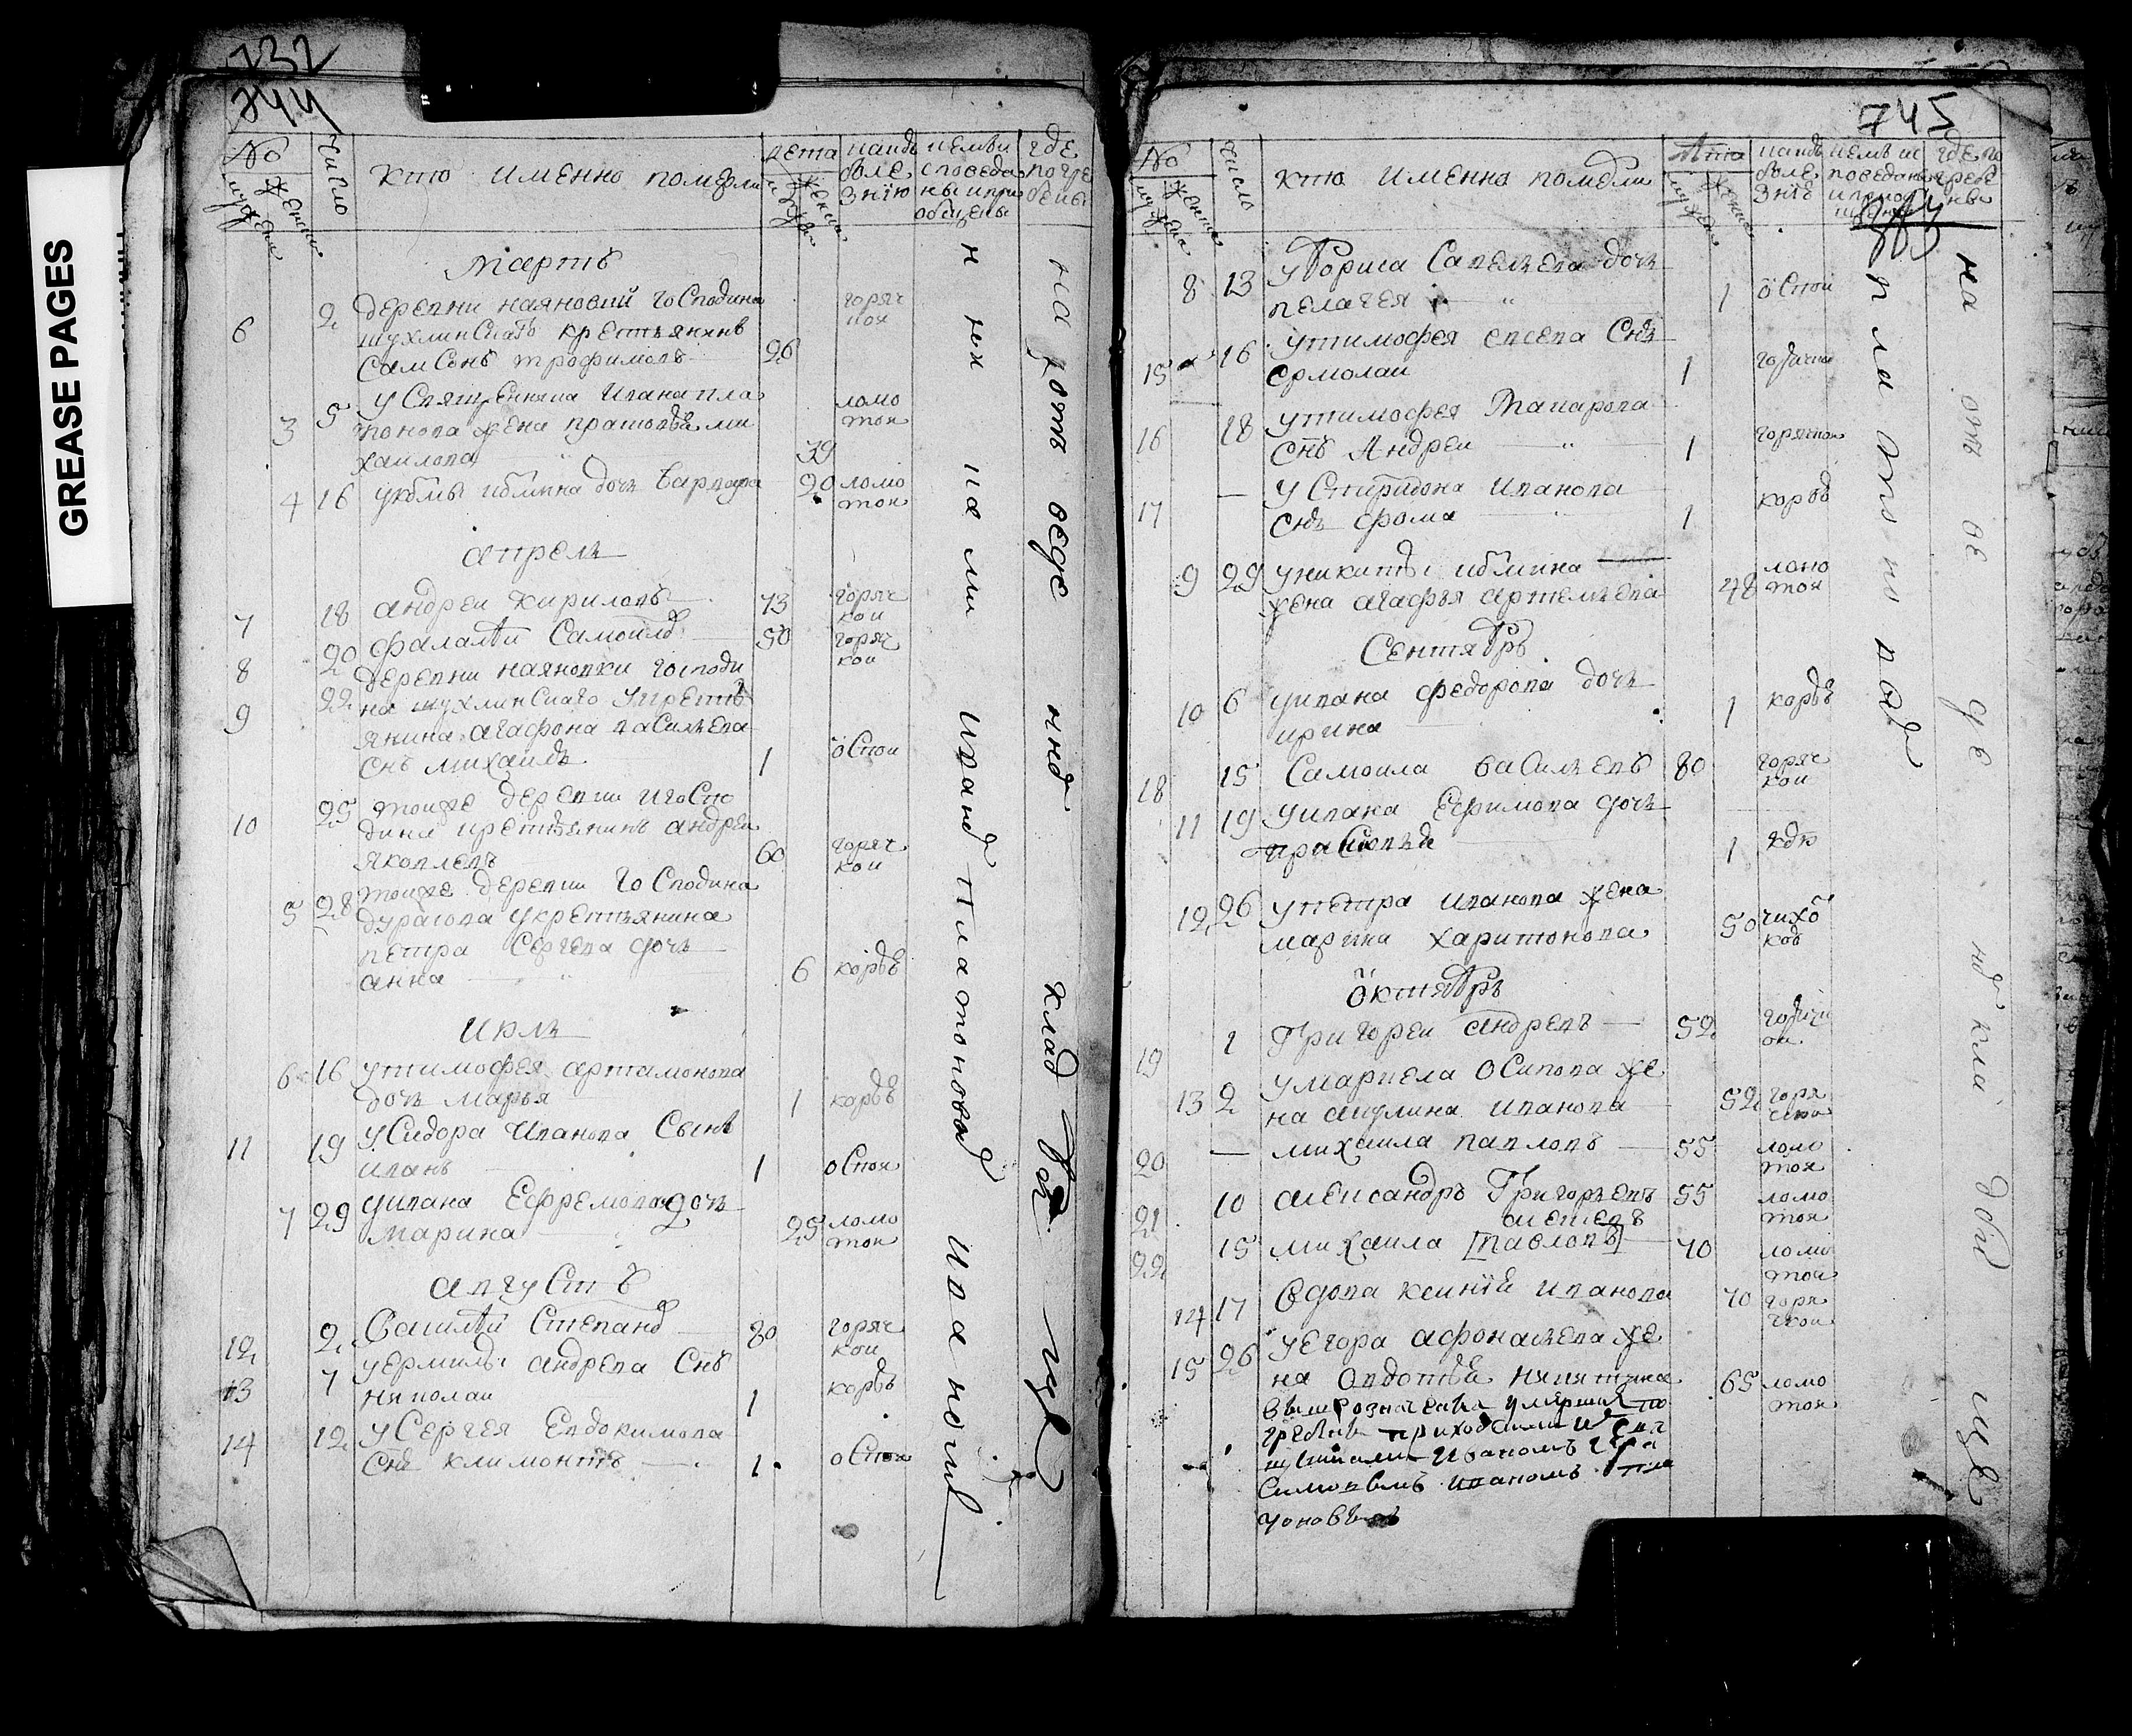 GREASE PAGES
732
744
No
мужеска
женска
число
кто именно померли
лета
мужеска
женска
какою болезнию
кемъ исповеданы и приобщены
где погребены
мартъ
6 2 деревни каяновки господина
шухлинскагъ крестьянинъ
самсонъ трофимовъ 26 горячкоя
3 5 у священника ивана пла
тонова жена прасковья ми
хаилова 39 ломотои
4 16 дочь варвара 20 ломотои
апрель
7 18 андреи кириловъ 73 горячкои
8 20 фалалѣи самоило 50 горячкои
9 22 деревни каяновки господи
на шухлинскаго у крестъ
янина агафона васильева
снъ михаилъ 1 оспои
10 25 тоиже деревни и госпо
дина крестьянинъ андреи
яковлевъ 60 горячкои
5 28 тоиже деревни господина
дурасова у крестьянина
петра сергева дочь
анна 6 корью
июль
6 16 у тимофея артамонова
дочь марья 1 корью
11 19 у сидора иванова сынъ
иванъ 1 оспоя
7 29 у ивана ефремова дочь
марина 25 ломотои
августъ
12 2 василѣи степано 80 горячкои
13 7 у ермилы андрева снъ
николаи 1 корью
14 12 у сергея евдокимова
снъ климонтъ 1 оспои
иванъ платоновъ
на отъ кладбище
745
No
мужеска
женска
число
кто именно померли
лета
мужеска
женска
какою болезнiѣ
кемъ исповеданы и приобщены
где погребены
8 13 у бориса савельева дочь
пелагея 1 оспои
15 16 у тимофея евсева снъ
ермолаи 1 горячкои
16 18 у тимофея макарова
снъ андреи 1 горячкои
17 — у спиридона иванова
снъ фома 1 корью
9 29 у никиты
жена агафья артемьева 48 ломотоя
сентябръ
10 6 у ивана федорова дочь
ирина 1 корью
18 15 самоила васильевъ 80 горячкои
11 19 у ивана ефимова дочь
прасковья 1
12 26 у петра иванова жена
марина харитонова 50 чихоткою
октябръ
19 1 григореи андревъ — 52 горячкои
13 2 у маркела осипова же
на акулина иванова 52 горячкою
20 — михаила павловъ — 55 ломотоя
21 10 александръ григорьевъ 55 ломотоя
алексевъ
22 15 михаила [павловъ] 70 ломотои
14 17 вдова ксинiя иванова 70 горячкои
15 26 у егора афонасьева же
на овдотья никитина 65 ломотоя
вышеозначеные умершия по
гребены приходскими свя
щенниками иваномъ гера
симовымъ иваномъ пла
тоновымъ